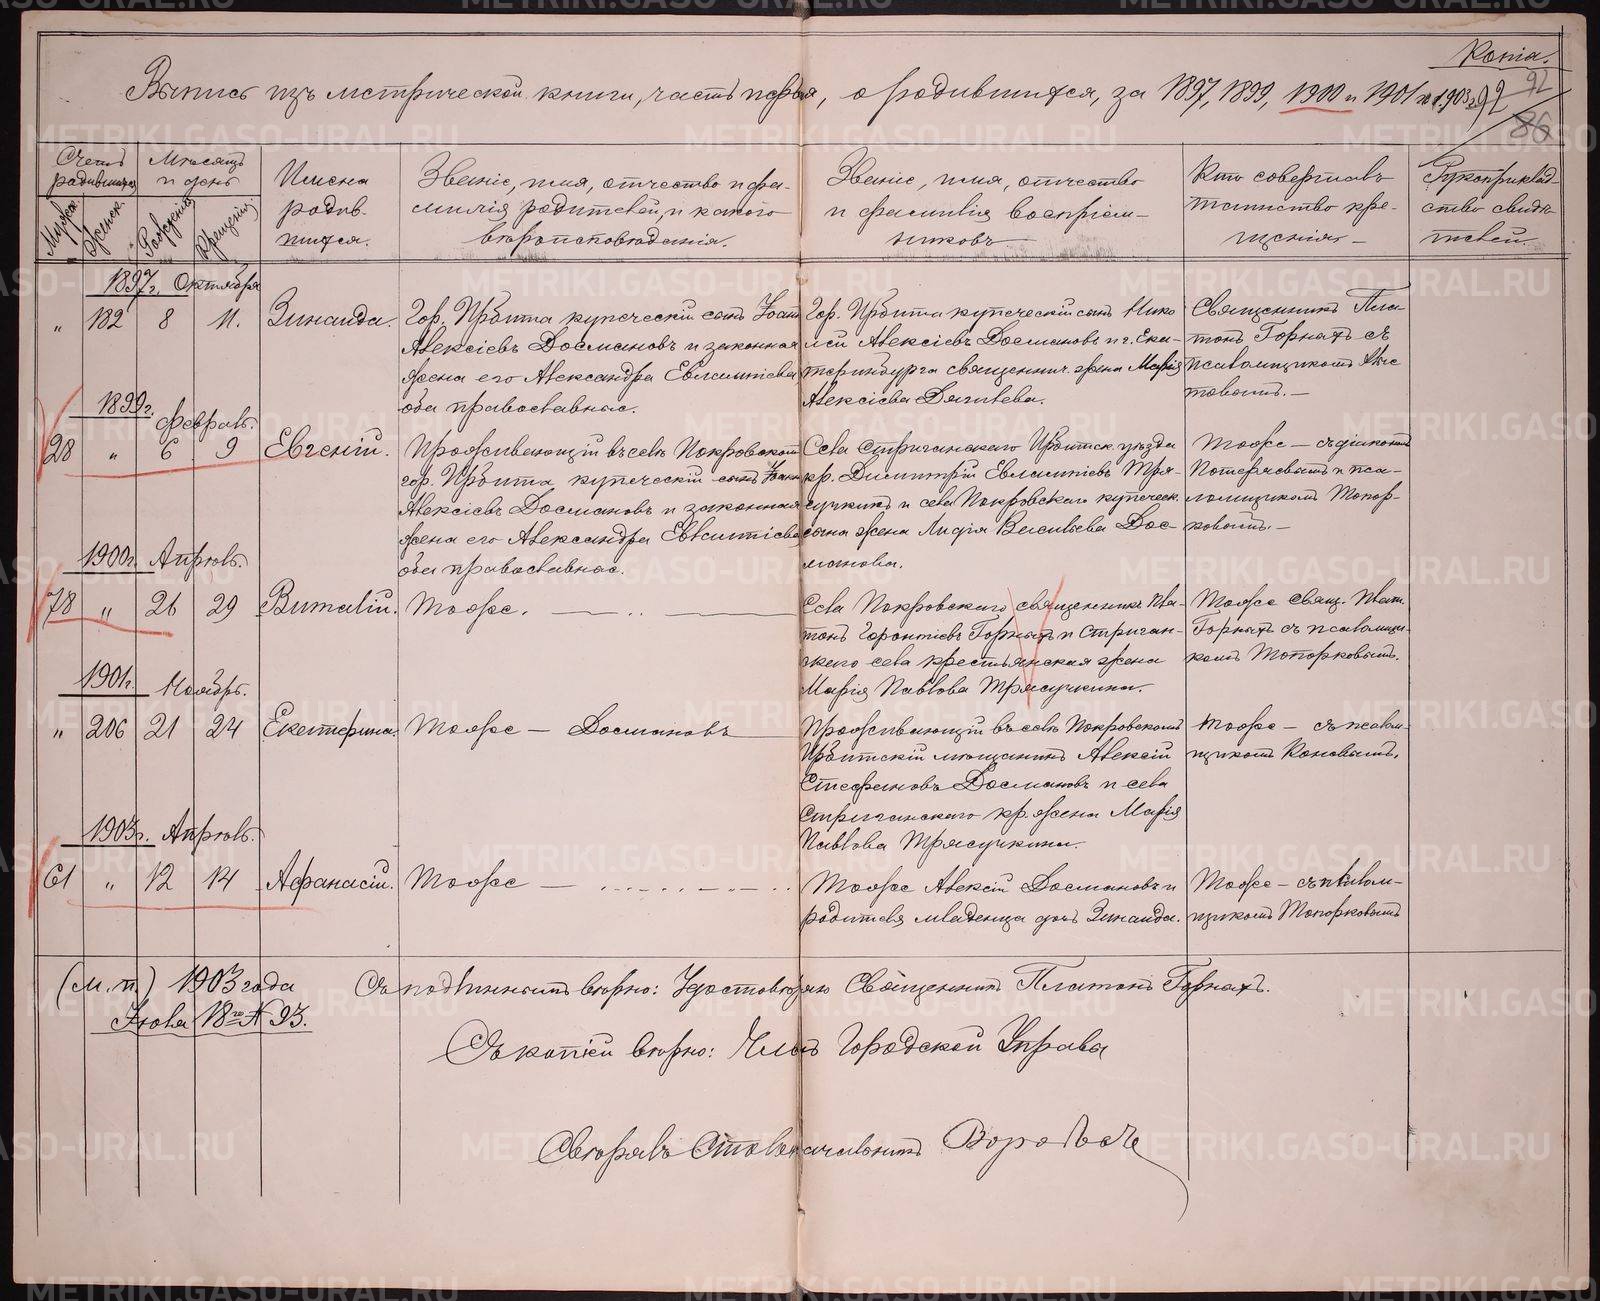 Копія.
Выпись изъ метрической книги, часть первая, о родившихся, за 1897, 1899, 1900 и 1901 и 1903 г.
92
92
86
Счетъ родившихся
Мѣсяцъ и день
Имена родившихся.
Званіе, имя, отчество и фамилія родителей, и какого вѣроисповѣданія.
Званіе, имя, отчество и фамилія воспріемниковъ
Кто совершалъ таинство крещенія
Рукоприкладство свидѣтелей.
Мужск.
Женск.
Рожденія
Крещенія
1897 г. Октября
" 182 8 11. Зинаида.
Гор. Ирбита купеческій сынъ Іоаннъ
Алексіевъ Досмановъ и законная
жена его Александра Евлампіева
оба православные.
Гор. Ирбита купеческій сынъ Нико-
лай Алексіевъ Досмановъ и г. Ека-
теринбурга священнич. жена Марія
Алексіева Дягилева.
Священникъ Пла-
тонъ Горныхъ съ
псаломщикомъ
1899 г. Февраль.
28 " 6 9 Евгеній.
Проживающій въ селѣ Покровскомъ
гор. Ирбита купеческій сынъ Іоаннъ
Алексіевъ Досмановъ и законная
жена его Александра Евлампіева
оба православные.
Села Стриганскаго Ирбитск. уѣзда
кр. Димитрій Евлампіевъ Тря-
сучкинъ и села Покровскаго купеческ.
сына жена Лидія Васильева Дос-
манова.
Тоже — съ діакономъ
Потеряевымъ и пса-
ломщикомъ Топор-
ковымъ. —
1900 г. Апрѣль.
78 " 26 29 Виталій.
Тоже. — " —
Села Покровскаго священникъ Пла-
тонъ Горныхъ и Стриган-
скаго села крестьянская жена
Марія Павлова Трясучкина.
Тоже свящ. Плат.
Горныхъ съ псаломщи-
комъ Топорковымъ.
1901 г. Ноябрь.
" 206 21 24 Екатерина.
Тоже — Досмановъ
Проживающій въ селѣ Покровскомъ
Ирбитскій мѣщанинъ Алексій
Стефановъ Досмановъ и села
Стриганскаго кр. жена Марія
Павлова Трясучкина.
Тоже — съ псалом-
щикомъ Коновымъ.
1903 г. Апрѣль.
61 " 12 14 Афанасій.
Тоже —
Тоже Алексій Досмановъ и
родителя младенца дочь Зинаида.
Тоже — съ псалом-
щикомъ Топорковымъ
(М. п.) 1903 года
Іюля 18 го № 93.
Съ подлиннымъ вѣрно: Удостовѣряю Священникъ Платонъ Горныхъ.
Съ копіей вѣрно: Членъ Городской Управы
Свѣрялъ Столоначальникъ
METRIKI.GASO-URAL.RU